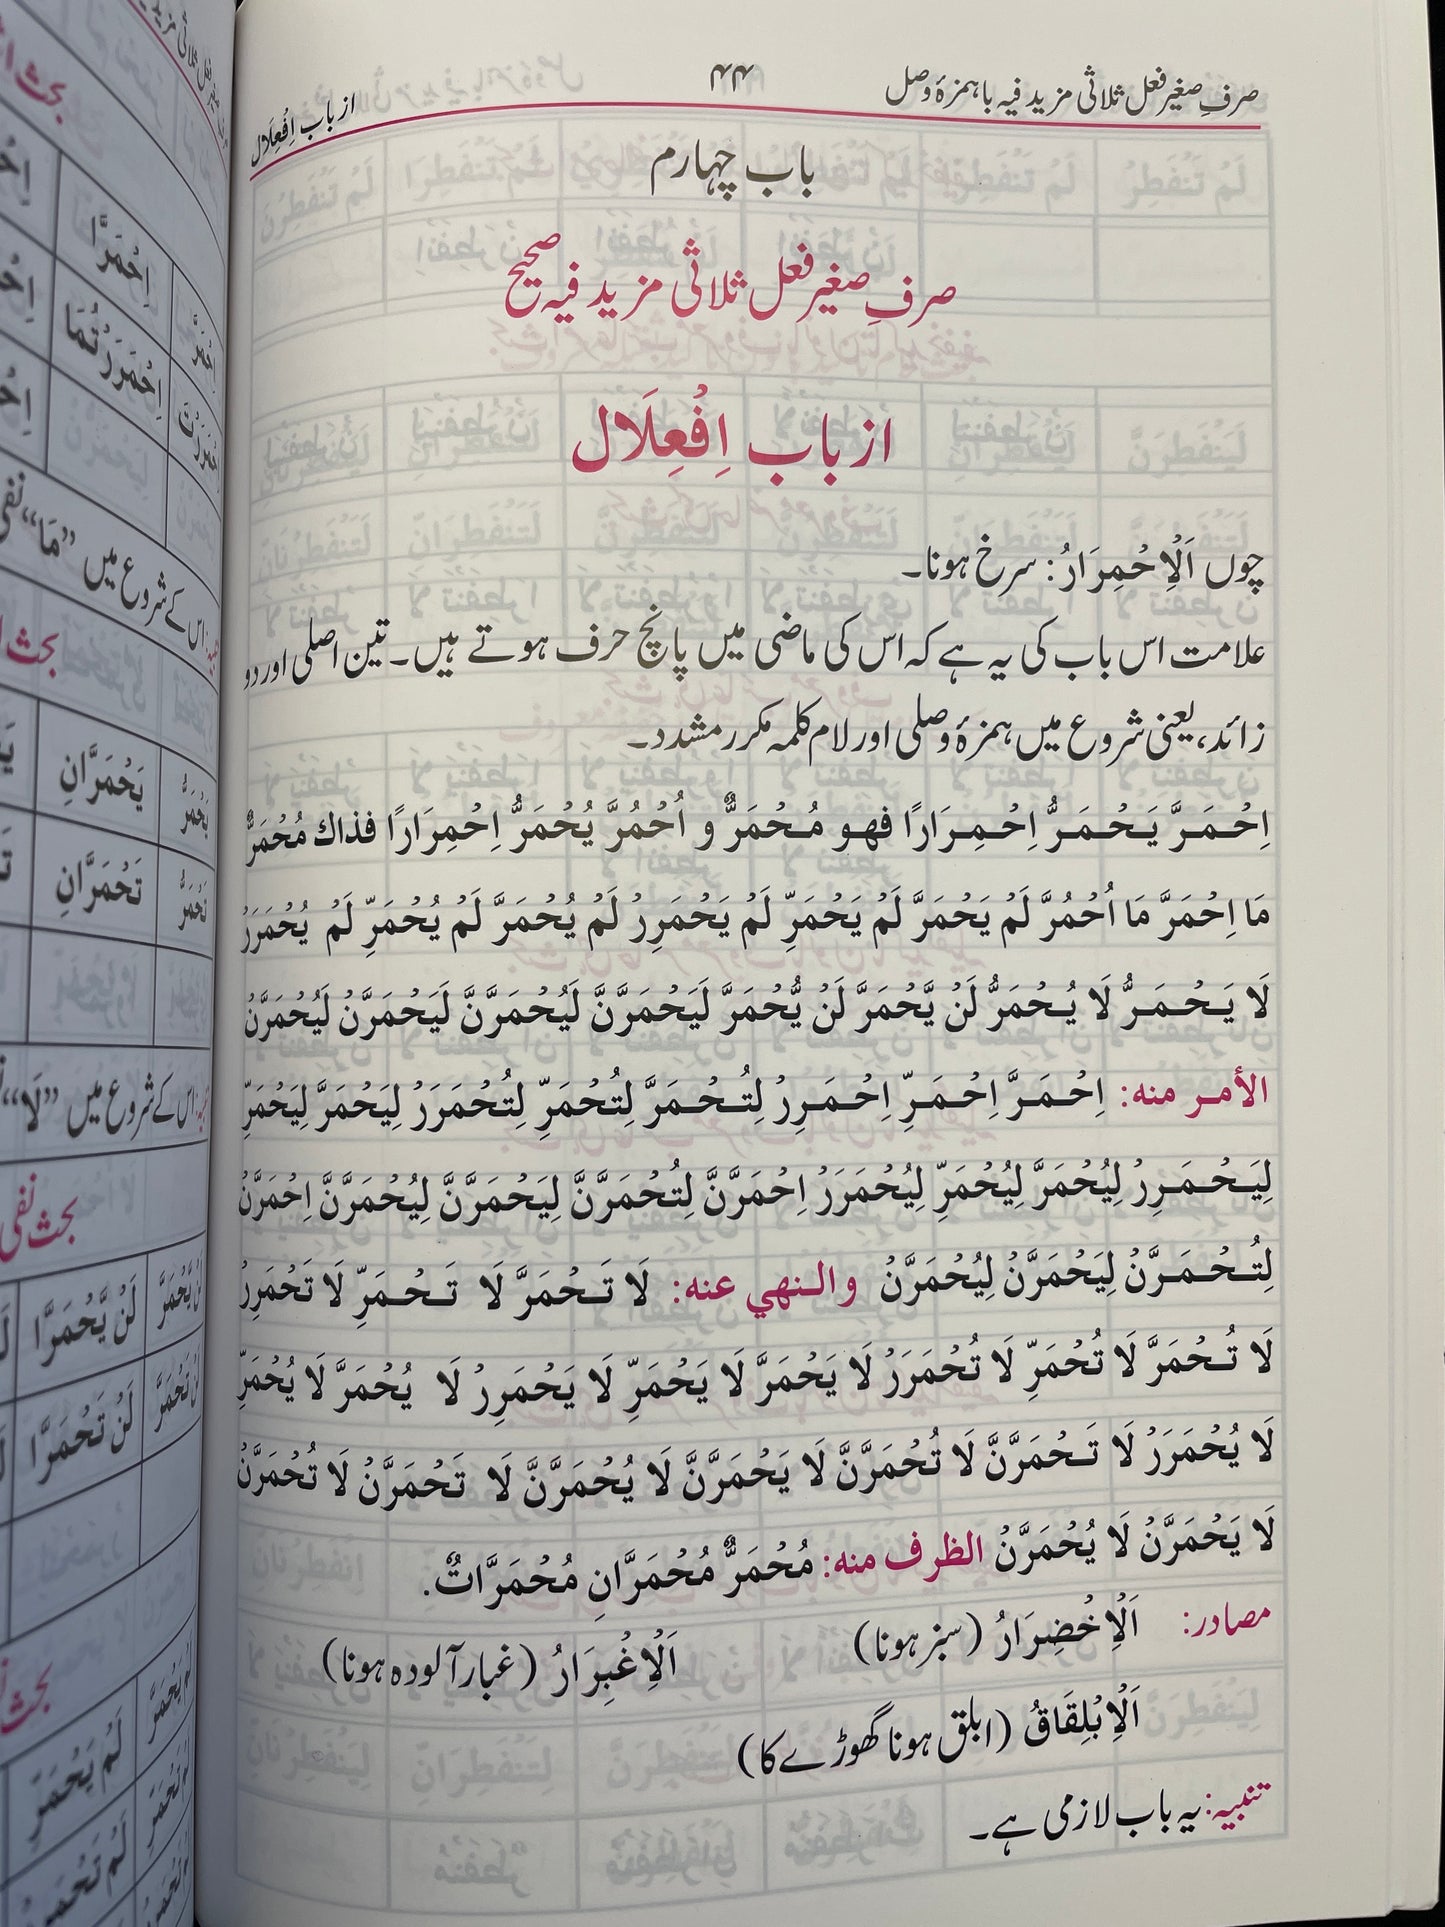 صرفِ صغیر فعل ثلاثی مزید فیہ با ہمزۂ وصل
۴۴
از باب اِفْعِلَال
باب چہارم
صرفِ صغیر فعل ثلاثی مزید فیہ صحیح
از باب اِفْعِلَال
چوں اَلْاِحْمِرَارُ: سرخ ہونا۔
علامت اس باب کی یہ ہے کہ اس کی ماضی میں پانچ حرف ہوتے ہیں۔ تین اصلی اور دو
زائد، یعنی شروع میں ہمزۂ وصلی اور لام کلمہ مکرر مشدد۔
اِحْمَرَّ يَحْمَرُّ اِحْمِرَارًا فهو مُحْمَرٌّ و اُحْمُرَّ يُحْمَرُّ اِحْمِرَارًا فذاك مُحْمَرٌّ
مَا اِحْمَرَّ مَا اُحْمُرَّ لَمْ يَحْمَرَّ لَمْ يَحْمَرِّ لَمْ يَحْمَرِرْ لَمْ يُحْمَرَّ لَمْ يُحْمَرِّ لَمْ يُحْمَرَرْ
لَا يَحْمَرُّ لَا يُحْمَرُّ لَنْ يَّحْمَرَّ لَنْ يُّحْمَرَّ لَيَحْمَرَّنَّ لَيُحْمَرَّنَّ لَيَحْمَرَّنْ لَيُحْمَرَّنْ
الأمر منه: اِحْمَرَّ اِحْمَرِّ اِحْمَرِرْ لِتُحْمَرَّ لِتُحْمَرِّ لِتُحْمَرَرْ لِيَحْمَرَّ لِيَحْمَرِّ
لِيَحْمَرِرْ لِيُحْمَرَّ لِيُحْمَرِّ لِيُحْمَرَرْ اِحْمَرَّنَّ لِتُحْمَرَّنَّ لِيَحْمَرَّنَّ لِيُحْمَرَّنَّ اِحْمَرَّنْ
لِتُحْمَرَّنْ لِيَحْمَرَّنْ لِيُحْمَرَّنْ والنهي عنه: لَا تَحْمَرَّ لَا تَحْمَرِّ لَا تَحْمَرِرْ
لَا تُحْمَرَّ لَا تُحْمَرِّ لَا تُحْمَرَرْ لَا يَحْمَرَّ لَا يَحْمَرِّ لَا يَحْمَرِرْ لَا يُحْمَرَّ لَا يُحْمَرِّ
لَا يُحْمَرَرْ لَا تَحْمَرَّنَّ لَا تُحْمَرَّنَّ لَا يَحْمَرَّنَّ لَا يُحْمَرَّنَّ لَا تَحْمَرَّنْ لَا تُحْمَرَّنْ
لَا يَحْمَرَّنْ لَا يُحْمَرَّنْ الظرف منه: مُحْمَرٌّ مُحْمَرَّانِ مُحْمَرَّاتٌ.
مصادر: اَلْاِخْضِرَارُ (سبز ہونا) اَلْاِغْبِرَارُ (غبار آلودہ ہونا)
اَلْاِبْلِقَاقُ (ابلق ہونا گھوڑے کا)
تنبیہ: یہ باب لازمی ہے۔
اِحْمَرَّا
اِحْمَرَرْتُمَا
اس کے شروع میں ”مَا“
يَحْمَرُّ
يَحْمَرَّانِ
تَحْمَرُّ
تَحْمَرَّانِ
اس کے شروع میں ”لَا“
بحث نفی
لَنْ يَّحْمَرَّا
لَنْ تَحْمَرَّا